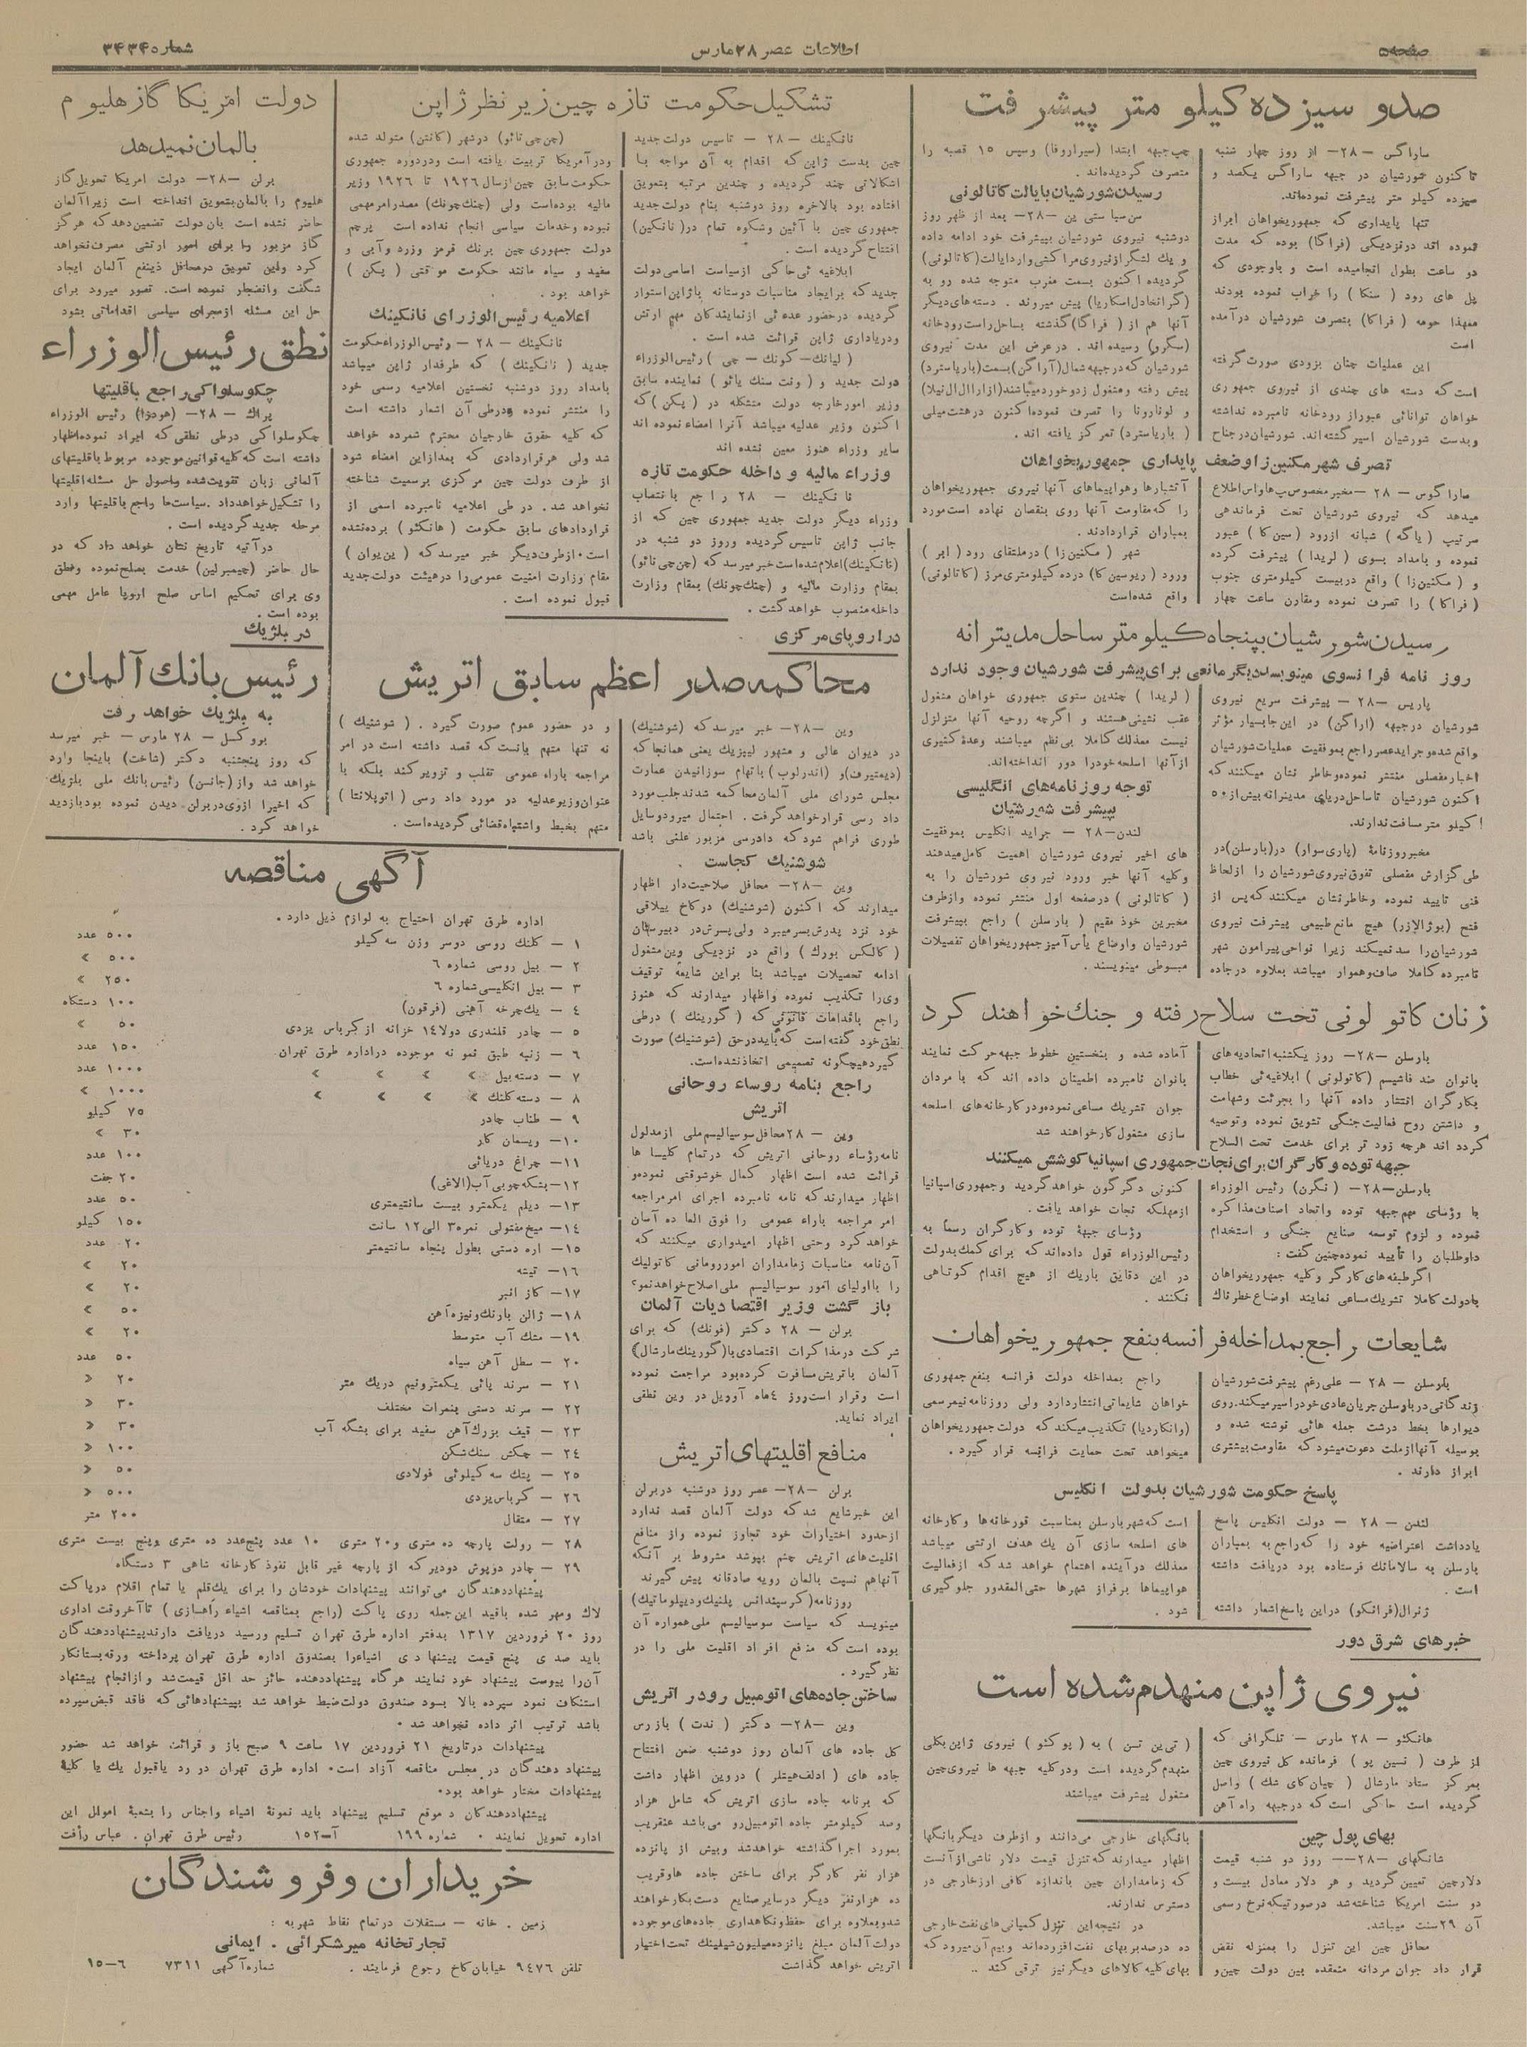 صفحه۵
اطلاعات عصر ۲۸ مارس
شماره ۳۴۳۴
صدو سیزده کیلو متر پیشرفت
ساراگس —۲۸— از روز چهار شنبه
تاکنون شورشیان در جبهه ساراگس یکصد و
سیزده کیلو متر پیشرفت نموده‌اند.
تنها پایداری که جمهوریخواهان ابراز
نموده اند درنزدیکی (فراگا) بوده که مدت
دو ساعت بطول انجامیده است و باوجودی که
پل های رود (سنکا) را خراب نموده بودند
معهذا حومه (فراکا) بتصرف شورشیان درآمده
است
این عملیات چنان بزودی صورت گرفته
است که دسته های چندی از نیروی جمهوری
خواهان توانائی عبوراز رودخانه نامبرده نداشته
وبدست شورشیان اسیر گشته‌اند. شورشیان درجناح
چپ جبهه ابتدا (سیراروفا) وسپس ۱۵ قصبه را
متصرف گردیده‌اند.
رسیدن شورشیان بایالت کاتالونی
سن سبا ستی ین —۲۸— بعد از ظهر روز
دوشنبه نیروی شورشیان بپیشرفت خود ادامه داده
و یك لشگر از نیروی مراکشی وارد ایالت (کاتالونی)
گردیده اکنون بسمت مغرب متوجه شده رو به
(گرانخادل اسکارپا) پیش میروند. دسته های دیگر
آنها هم از (فراگا) گذشته بساحل راست رودخانه
(سگرو) رسیده اند. درعرض این مدت نیروی
شورشیان که در جبهه شمال (آراگن) بسمت (بارباسترد)
پیش رفته ومشغول زدوخورد میباشند (ازارا ال النیلا)
و لونارونا را تصرف نموده اکنون در هشت میلی
(بارباسترد) تمرکز یافته اند.
تصرف شهر مکنین زا وضعف پایداری جمهوریخواهان
ساراگوس —۲۸— مخبر مخصوص هاواس اطلاع
میدهد که نیروی شورشیان تحت فرماندهی
سرتیپ (یاگه) شبانه ازرود (سین کا) عبور
نموده و بامداد بسوی (لریدا) پیشرفت کرده
و (مکنین زا) واقع دربیست کیلومتری جنوب
(فراکا) را تصرف نموده ومقارن ساعت چهار
آتشبارها وهواپیماهای آنها نیروی جمهوریخواهان
را که مقاومت آنها روی بنقصان نهاده است مورد
بمباران قراردادند.
شهر (مکنین زا) درملتقای رود (ابر)
ورود (ریوسین کا) درده کیلومتری مرز (کاتالونی)
واقع شده‌است
رسیدن شورشیان بپنجاه کیلو متر ساحل مدیترانه
روز نامه فرا نسوی مینویسد دیگر مانعی برای پیشرفت شورشیان وجود ندارد
پاریس —۲۸— پیشرفت سریع نیروی
شورشیان درجبهه (اراگن) در این جا بسیار مؤثر
واقع شده و جراید عصر راجع بموفقیت عملیات شورشیان
اخبار مفصلی منتشر نموده و خاطر نشان میکنند که
اکنون شورشیان تا ساحل دریای مدیترانه بیش از ۵۰
کیلو متر مسافت ندارند.
مخبر روزنامهٔ (پاری سوار) در (بارسلن) در
طی گزارش مفصلی تفوق نیروی شورشیان را ازلحاظ
فنی تایید نموده وخاطر نشان میکنند که پس از
فتح (بوژالازر) هیچ مانع طبیعی پیشرفت نیروی
شورشیان را سد نمیکند زیرا نواحی پیرامون شهر
نامبرده کاملا صاف وهموار میباشد بعلاوه در جاده
(لریدا) چندین ستوی جمهوری خواهان مشغول
عقب نشینی هستند و اگرچه روحیه آنها متزلزل
نیست معذلک کاملا بی نظم میباشند وعدهٔ کثیری
از آنها اسلحه خود را دور انداخته‌اند.
توجه روزنامه‌های انگلیسی
بپیشرفت شورشیان
لندن —۲۸— جراید انگلیس بموفقیت
های اخیر نیروی شورشیان اهمیت کامل میدهند
وکلیه آنها خبر ورود نیروی شورشیان را به
(کاتالونی) درصفحه اول منتشر نموده وازطرف
مخبرین خود مقیم (بارسلن) راجع بپیشرفت
شورشیان واوضاع یأس آمیز جمهوریخواهان تفصیلات
مبسوطی مینویسند.
زنان کاتولونی تحت سلاح رفته و جنگ خواهند کرد
بارسلن —۲۸— روز یکشنبه اتحادیه های
بانوان ضد فاشیسم (کاتولونی) ابلاغیه ئی خطاب
بکارگران انتشار داده آنها را بجرئت وشهامت
و داشتن روح فعالیت جنگی تشویق نموده و توصیه
کردد اند هرچه زود تر برای خدمت تحت السلاح
آماده شده و بنخستین خطوط جبهه حرکت نمایند
بانوان نامبرده اطمینان داده اند که با مردان
جوان تشریك مساعی نموده و در کارخانه های اسلحه
سازی مشغول کار خواهند شد
جبهه توده و کارگران برای نجات جمهوری اسپانیا کوشش میکنند
بارسلن —۲۸— (نگرن) رئیس الوزراء
با رؤسای مهم جبهه توده واتحاد اصناف مذاکره
نموده و لزوم توسعه صنایع جنگی و استخدام
داوطلبان را تأیید نموده چنین گفت:
اگر طبقه‌های کارگر و کلیه جمهوریخواهان
بادولت کاملا تشریك مساعی نمایند اوضاع خطرناك
کنونی دگرگون خواهد گردید و جمهوری اسپانیا
ازمهلکه نجات خواهد یافت.
رؤسای جبههٔ توده وکارگران رسماً به
رئیس الوزراء قول داده‌اند که برای کمك بدولت
در این دقایق باریك از هیچ اقدام کوتاهی
نکنند.
شایعات راجع بمداخله فرانسه بنفع جمهوریخواهان
بارسلن —۲۸— علی رغم پیشرفت شورشیان
زندگانی در بارسلن جریان عادی خود را سیر میکند. روی
دیوارها بخط درشت جمله هائی نوشته شده و
بوسیله آنها از ملت دعوت میشود که مقاومت بیشتری
ابراز دارند.
راجع بمداخله دولت فرانسه بنفع جمهوری
خواهان شایعاتی انتشار دارد ولی روزنامه نیمرسمی
(وانکاردیا) تکذیب میکند که دولت جمهوریخواهان
میخواهد تحت حمایت فرانسه قرار گیرد.
پاسخ حکومت شورشیان بدولت انگلیس
لندن —۲۸— دولت انگلیس پاسخ
یادداشت اعتراضیه خود را که راجع به بمباران
بارسلن به سالامانك فرستاده بود دریافت داشته
است.
ژنرال (فرانکو) دراین پاسخ اشعار داشته
است که شهر بارسلن بمناسبت قورخانه‌ها و کارخانه
های اسلحه سازی آن یك هدف ارتشی میباشد
معذلك درآینده اهتمام خواهد شد که از فعالیت
هواپیماها برفراز شهرها حتی المقدور جلوگیری
شود.
خبرهای شرق دور
نیروی ژاپن منهدم شده است
هانکئو —۲۸ مارس— تلگرافی که
از طرف (تسین پو) فرمانده کل نیروی چین
بمرکز ستاد مارشال (چیان کای شك) واصل
گردیده است حاکی است که درجبهه راه آهن
(تی ین تسن) به (پوکئو) نیروی ژاپن بکلی
منهدم گردیده است ودرکلیه جبهه ها نیروی چین
مشغول پیشرفت میباشند
بهای پول چین
شانگهای —۲۸— روز دو شنبه قیمت
دلار چین تعیین گردید و هر دلار معادل بیست و
دو سنت امریکا شناخته شد درصورتیکه نرخ رسمی
آن ۲۹ سنت میباشد.
محافل چین این تنزل را بمنزله نقض
قرار داد جوان مردانه منعقده بین دولت چین و
بانگهای خارجی می‌دانند و ازطرف دیگر بانگها
اظهار میدارند که تنزل قیمت دلار ناشی از آنست
که زمامداران چین باندازه کافی ارز خارجی در
دسترس ندارند.
در نتیجه این تنزل کمپانی های نفت خارجی
ده درصد بر بهای نفت افزوده‌اند و بیم آن میرود که
بهای کلیه کالاهای دیگر نیز ترقی کند ..
تشکیل حکومت تازه چین زیر نظر ژاپن
نانکینك —۲۸— تاسیس دولت جدید
چین بدست ژاپن که اقدام به آن مواجه با
اشکالاتی چند گردیده و چندین مرتبه بتعویق
افتاده بود بالاخره روز دوشنبه بنام دولت جدید
جمهوری چین با آئین وشکوه تمام در (نانکین)
افتتاح گردیده است.
ابلاغیه ئی حاکی ازسیاست اساسی دولت
جدید که برایجاد مناسبات دوستانه با ژاپن استوار
گردیده در حضور عده ئی از نمایندگان مهم ارتش
ودریاداری ژاپن قرائت شده است.
(لیانك— کونك — جی) رئیس الوزراء
دولت جدید و (ونت سنك یائو) نماینده سابق
وزیر امورخارجه دولت متشکله در (پکن) که
اکنون وزیر عدلیه میباشد آنرا امضاء نموده اند
سایر وزراء هنوز معین نشده اند
وزراء مالیه و داخله حکومت تازه
نانکینك —۲۸ راجع بانتصاب
وزراء دیگر دولت جدید جمهوری چین که از
جانب ژاپن تاسیس گردیده وروز دو شنبه در
(نانکینك) اعلام شده است خبر میرسد که (چن جی تائو)
بمقام وزارت مالیه و (چنك چونك) بمقام وزارت
داخله منصوب خواهد گشت.
(چن جی تائو) درشهر (کانتن) متولد شده
ودر آمریکا تربیت یافته است ودردوره جمهوری
حکومت سابق چین ازسال ۱۹۲۶ تا ۱۹۲۶ وزیر
مالیه بوده‌است ولی (چنك چونك) مصدر امر مهمی
نبوده وخدمات سیاسی انجام نداده است. پرچم
دولت جمهوری چین برنك قرمز وزرد وآبی و
سفید و سیاه مانند حکومت موقتی (پکن)
خواهد بود.
اعلامیه رئیس الوزرای نانکینك
نانکینك —۲۸— رئیس الوزراء حکومت
جدید (نانکینك) که طرفدار ژاپن میباشد
بامداد روز دوشنبه نخستین اعلامیه رسمی خود
را منتشر نموده ودرطی آن اشعار داشته است
که کلیه حقوق خارجیان محترم شمرده خواهد
شد ولی هر قراردادی که بعد از این امضاء شود
از طرف دولت چین مرکزی برسمیت شناخته
نخواهد شد. در طی اعلامیه نامبرده اسمی از
قراردادهای سابق حکومت (هانکئو) برده نشده
است. از طرف دیگر خبر میرسد که (ین یوان)
مقام وزارت امنیت عمومی را در هیئت دولت جدید
قبول نموده است.
در اروپای مرکزی
محاکمه صدر اعظم سابق اتریش
وین —۲۸— خبر میرسد که (شوشنیك)
در دیوان عالی و مشهور لیپزیك یعنی همانجا که
(دیمتیرف) و (اندرلوب) باتهام سوزانیدن عمارت
مجلس شورای ملی آلمان محاکمه شدند جلب مورد
داد رسی قرار خواهد گرفت. احتمال میرود وسایل
طوری فراهم شود که دادرسی مزبور علنی باشد
و در حضور عموم صورت گیرد. (شوشنیك)
نه تنها متهم باینست که قصد داشته است در امر
مراجعه باراء عمومی تقلب و تزویر کند بلکه با
عنوان وزیر عدلیه در مورد داد رسی (اتوپلانتا)
متهم بخبط و اشتباه قضائی گردیده است.
شوشنیك کجاست
وین —۲۸— محافل صلاحیت‌دار اظهار
میدارند که اکنون (شوشنیك) درکاخ ییلاقی
خود نزد پدرش بسر میبرد ولی پسرش در دبیرستان
(کالکس بورك) واقع در نزدیکی وین مشغول
ادامه تحصیلات میباشد بنا براین شایعهٔ توقیف
وی را تکذیب نموده و اظهار میدارند که هنوز
راجع باقدامات قانونی که (گورینك) درطی
نطق خود گفته است که باید در حق (شوشنیك) صورت
گیرد هیچگونه تصمیمی اتخاذ نشده‌است.
راجع بنامه روساء روحانی
اتریش
وین —۲۸ محافل سوسیالیسم ملی از مدلول
نامه رؤساء روحانی اتریش که درتمام کلیسا ها
قرائت شده است اظهار کمال خوشوقتی نموده و
اظهار میدارند که نامه نامبرده اجرای امر مراجعه
امر مراجعه باراء عمومی را فوق العاده آسان
خواهد کرد وحتی اظهار امیدواری میکنند که
آن نامه مناسبات زمامداران امور رومانی کاتولیك
را با اولیای امور سوسیالیسم ملی اصلاح خواهد نمود
باز گشت وزیر اقتصادیات آلمان
برلن —۲۸ دکتر (فونك) که برای
شرکت در مذاکرات اقتصادی با (گورینك مارشال)
آلمان باتریش مسافرت کرده‌بود مراجعت نموده
است وقرار است روز ٤ ماه آوریل در وین نطقی
ایراد نماید.
منافع اقلیتهای اتریش
برلن —۲۸— عصر روز دوشنبه در برلن
این خبر شایع شد که دولت آلمان قصد ندارد
از حدود اختیارات خود تجاوز نموده واز منافع
اقلیت‌های اتریش چشم بپوشد مشروط بر آنکه
آنها هم نسبت بآلمان رویه صادقانه پیش گیرند
روزنامه (کرسپندانس پلتیك ودیپلوماتیك)
مینویسد که سیاست سوسیالیسم ملی همواره آن
بوده است که منافع افراد اقلیت ملی را در
نظر گیرد.
ساختن جاده‌های اتومبیل رو در اتریش
وین —۲۸— دکتر (ندت) بازرس
کل جاده های آلمان روز دوشنبه ضمن افتتاح
جاده های (ادلف هیتلر) در وین اظهار داشت
که برنامه جاده سازی اتریش که شامل هزار
وصد کیلومتر جاده اتومبیل‌رو می‌باشد عنقریب
بمورد اجرا گذاشته خواهد شد وبیش از پانزده
هزار نفر کارگر برای ساختن جاده ها وقریب
ده هزار نفر دیگر درسایر صنایع دست بکار خواهند
شد وبعلاوه برای حفظ ونگاهداری جاده های موجوده
دولت آلمان مبلغ پانزده میلیون شیلینك تحت اختیار
اتریش خواهد گذاشت
دولت امریکا گاز هلیوم
بالمان نمیدهد
برلن —۲۸— دولت امریکا تحویل گاز
هلیوم را بآلمان بتعویق انداخته است زیرا آلمان
حاضر نشده است بآن دولت تضمین دهد که هرگز
گاز مزبور را برای امور ارتشی مصرف نخواهد
کرد واین تعویق در محافل ذینفع آلمان ایجاد
شگفت وانضجار نموده است. تصور میرود برای
حل این مسئله ازمجرای سیاسی اقداماتی بشود
نطق رئیس الوزراء
چکوسلواکی راجع باقلیتها
پراك —۲۸— (هودزا) رئیس الوزراء
چکوسلواکی درطی نطقی که ایراد نموده اظهار
داشته است که کلیه قوانین موجوده مربوط باقلیتهای
آلمانی زبان تقویت شده واصول حل مسئله اقلیتها
را تشکیل خواهد داد. سیاست ما راجع باقلیتها وارد
مرحله جدید گردیده است.
درآتیه تاریخ نشان خواهد داد که در
حال حاضر (چیمبرلین) خدمت بصلح نموده ونطق
وی برای تحکیم اساس صلح اروپا عامل مهمی
بوده است.
در بلژیك
رئیس بانك آلمان
به بلژیك خواهد رفت
بروکسل —۲۸ مارس— خبر میرسد
که روز پنجشنبه دکتر (شاخت) باینجا وارد
خواهد شد واز (جانسن) رئیس بانك ملی بلژیك
که اخیرا ازوی در برلن دیدن نموده بود بازدید
خواهد کرد.
آگهی مناقصه
اداره طرق تهران احتیاج به لوازم ذیل دارد.
۱ — کلنك روسی دوسر وزن سه کیلو ۵۰۰ عدد
۲ — بیل روسی شماره ۶ ۵۰۰ »
۳ — بیل انگلیسی شماره ۶ ۲۵۰ »
٤ — یك چرخه آهنی (فرقون) ۱۰۰ دستگاه
۵ — چادر قلندری دولا ۱٤ خزانه از کرباس یزدی ۵۰ »
۶ — زنبه طبق نمونه موجوده در اداره طرق تهران ۱۵۰ عدد
۷ — دسته بیل » » » » ۱۰۰۰ عدد
۸ — دسته کلنك » » » » ۱۰۰۰ »
۹ — طناب چادر ۷۵ کیلو
۱۰— ریسمان کار ۳۰ »
۱۱— چراغ دریائی ۱۰۰ عدد
۱۲—بشکه چوبی آب (الاغی) ۲۰ جفت
۱۳— دیلم یکمترو بیست سانتیمتری ۵۰ عدد
۱٤— میخ مفتولی نمره ۳ الی ۱۲ سانت ۱۵۰ کیلو
۱۵— اره دستی بطول پنجاه سانتیمتر ۲۰ عدد
۱۶— تیشه ۲۰ »
۱۷— کاز انبر ۲۰ »
۱۸— ژالن بارنك ونیزه آهن ۵۰ »
۱۹— مشك آب متوسط ۲۰ »
۲۰ — سطل آهن سیاه ۵۰ عدد
۲۱ — سرند پائی یکمترونیم دریك متر ۲۰ »
۲۲ — سرند دستی بنمرات مختلف ۳۰ »
۲۳ — قیف بزرك آهن سفید برای بشگه آب ۳۰ »
۲٤ — چکش سنك شکن ۱۰۰ »
۲۵ — پتك سه کیلوئی فولادی ۵۰ »
۲۶ — کرباس یزدی ۵۰۰ »
۲۷ — متقال ۲۰۰ متر
۲۸ — رولت پارچه ده متری و ۲۰ متری ۱۰ عدد پنج عدد ده متری وپنج بیست متری
۲۹ — چادر دوپوش دودیرکه از پارچه غیر قابل نفوذ کارخانه شاهی ۳ دستگاه
پیشنهاددهندگان می‌توانند پیشنهادات خودشان را برای یك قلم یا تمام اقلام درپاکت
لاك ومهر شده باقید این جمله روی پاکت (راجع بمناقصه اشیاء راهسازی) تا آخر وقت اداری
روز ۲۰ فروردین ۱۳۱۷ بدفتر اداره طرق تهران تسلیم ورسید دریافت دارند پیشنهاددهندگان
باید صدی پنج قیمت پیشنهادی اشیاءرا بصندوق اداره طرق تهران پرداخته ورقه بستانکار
آن‌را پیوست پیشنهاد خود نمایند هرگاه پیشنهاددهنده حائز حد اقل قیمت شد و از انجام پیشنهاد
استنکاف نمود سپرده بالا بسود صندوق دولت ضبط خواهد شد بپیشنهادهائی که فاقد قبض سپرده
باشد ترتیب اثر داده نخواهد شد.
پیشنهادات درتاریخ ۲۱ فروردین ۱۷ ساعت ۹ صبح باز و قرائت خواهد شد حضور
پیشنهاد دهندگان در مجلس مناقصه آزاد است. اداره طرق تهران در رد یا قبول یك یا کلیهٔ
پیشنهادات مختار خواهد بود.
پیشنهاددهندگان در موقع تسلیم پیشنهاد باید نمونهٔ اشیاء واجناس را بشعبهٔ اموال این
اداره تحویل نمایند. شماره ۱۹۹ آ—۱۵۲ رئیس طرق تهران. عباس رأفت
خریداران وفروشندگان
زمین. خانه — مستقلات درتمام نقاط شهر به:
تجارتخانه میرشکرائی. ایمانی
تلفن ۹٤۷۶ خیابان کاخ رجوع فرمایند. شماره آگهی ۷۳۱۱ ۶—۱۵